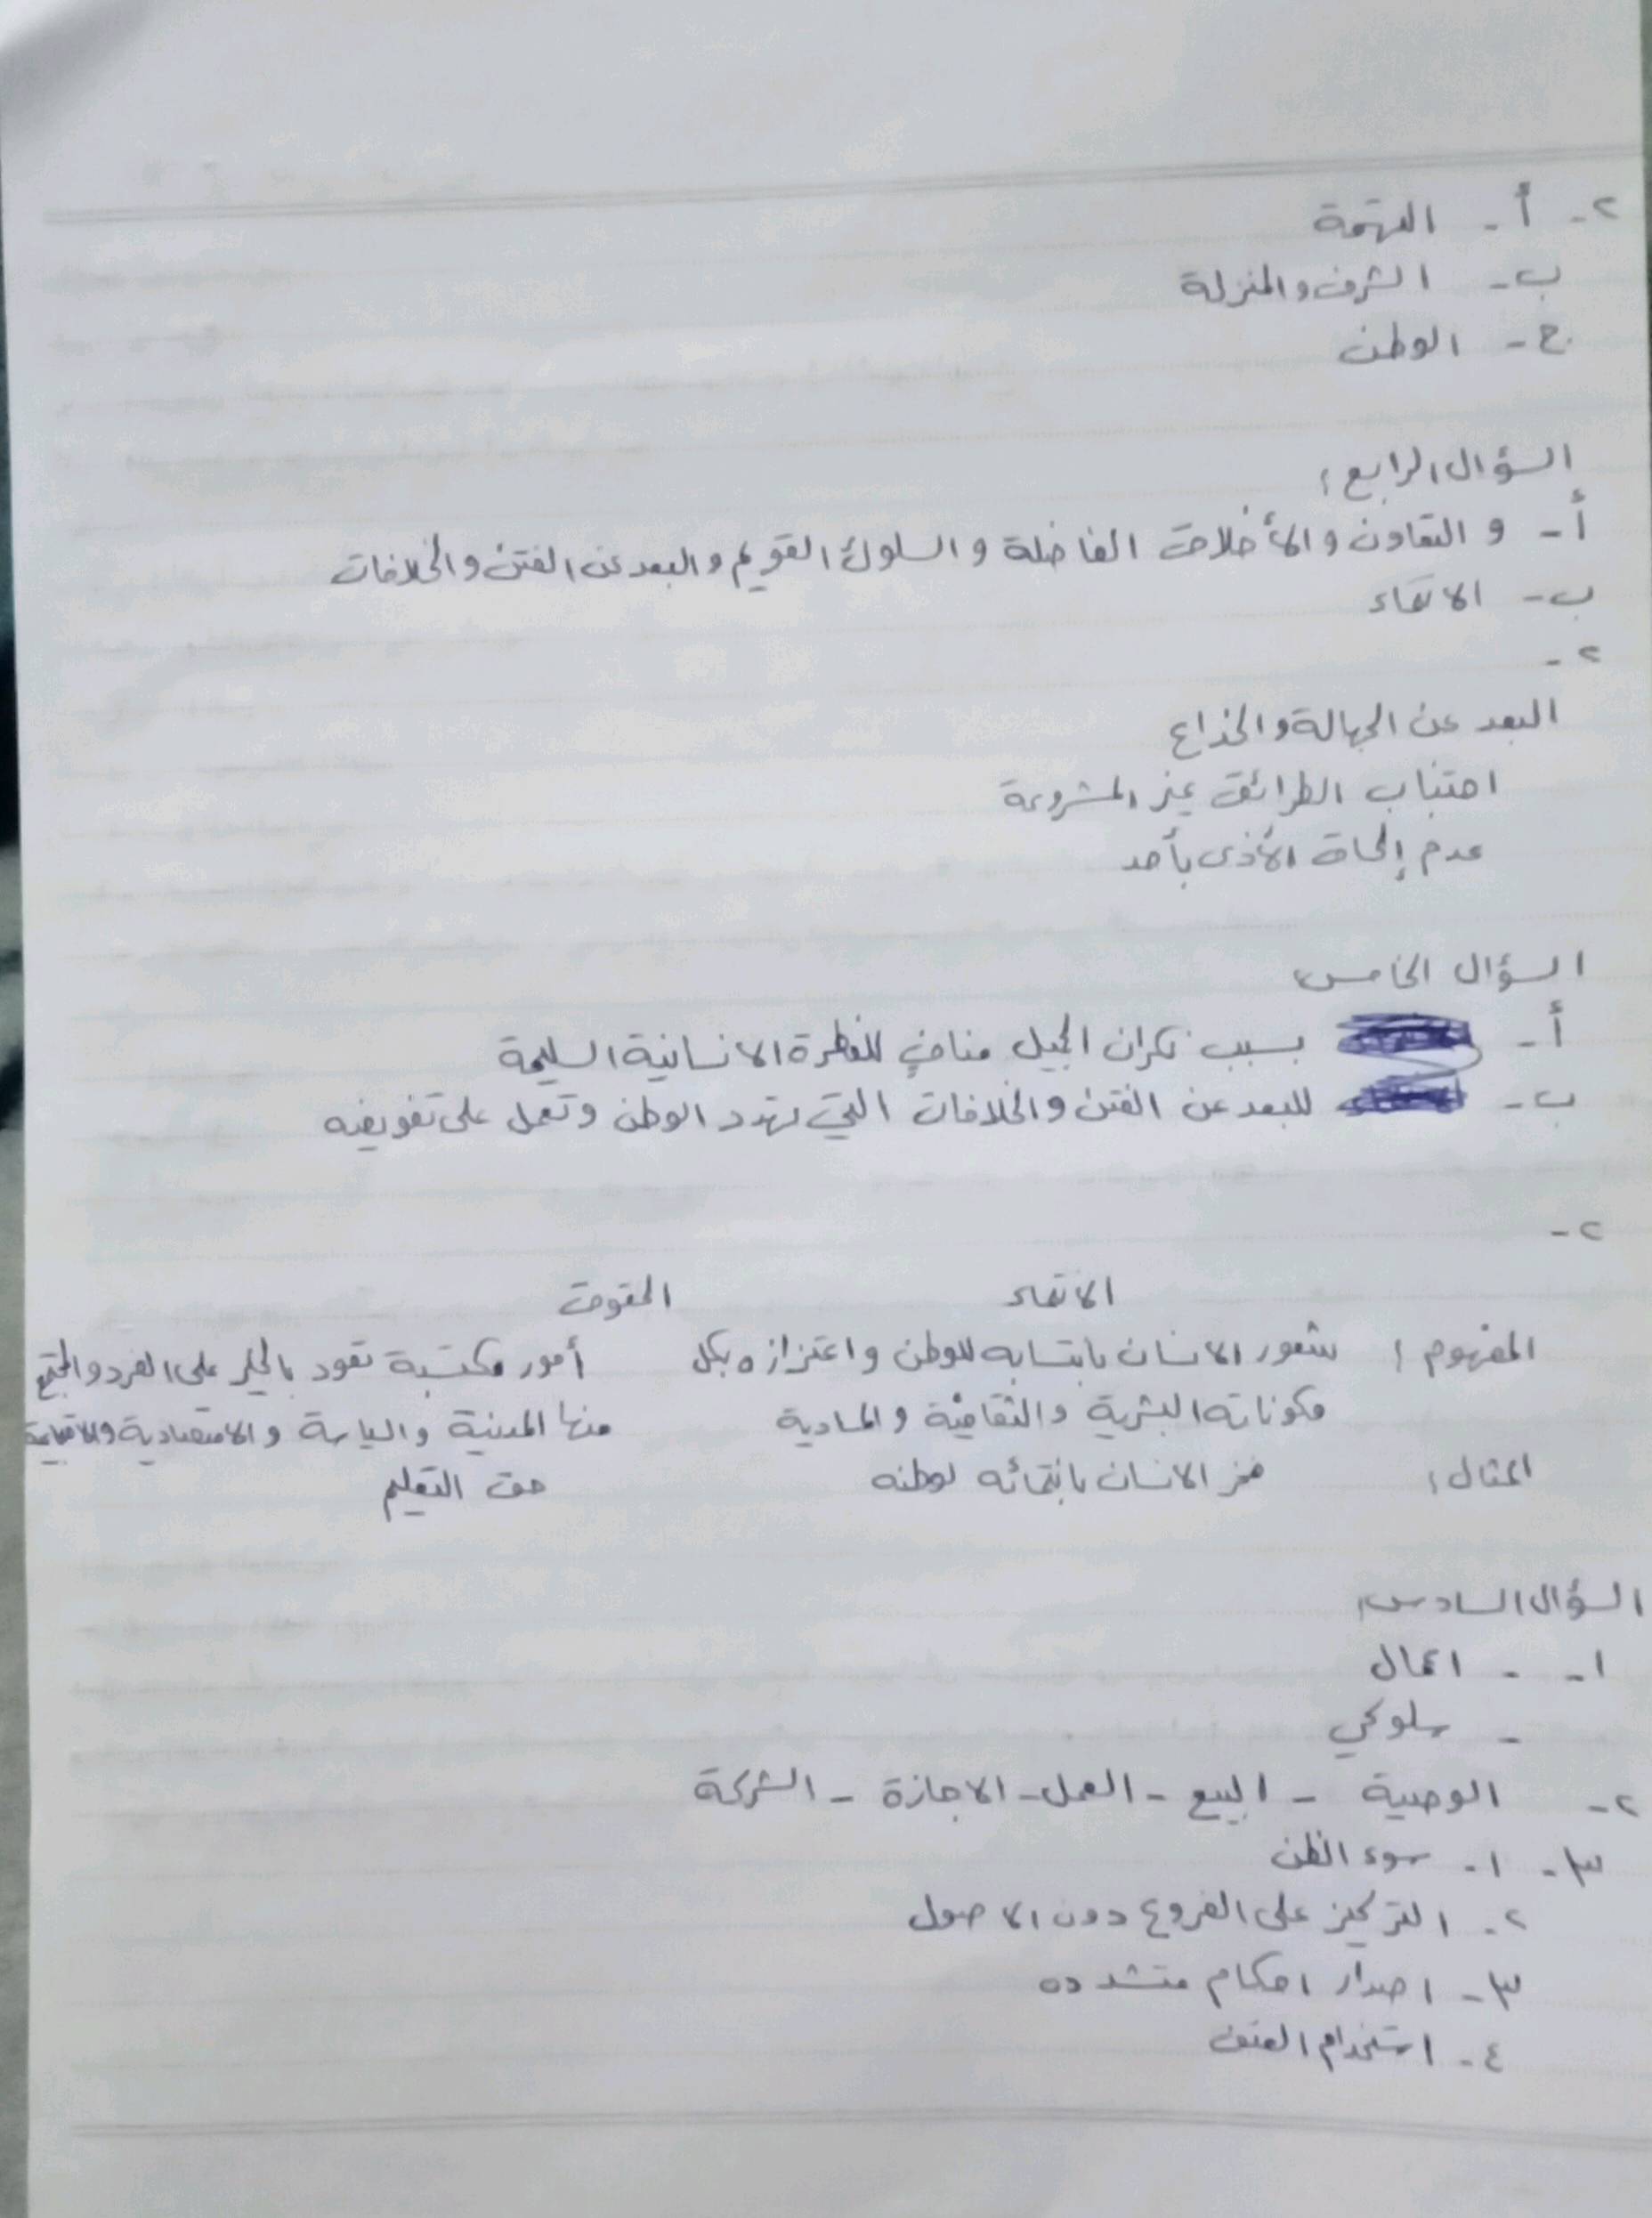 ٢- أ- التهمة
ب- الشرف والمنزلة
ج- الوطن
السؤال الرابع:
أ- و التعاون والأخلاق الفاضلة والسلوك القويم والبعد عن الفتن والخلافات
ب- الانتماء
٢-
البعد عن الجهالة والخداع
اجتناب الطرائق غير المشروعة
عدم إلحاق الأذى بأحد
السؤال الخامس
أ- بسبب نكران الجميل منافٍ للفطرة الانسانية السليمة
ب- للبعد عن الفتن والخلافات التي تهدد الوطن وتعمل على تقويضه
٢-
الانتماء الحقوق
المفهوم: شعور الانسان بانتسابه للوطن واعتزازه بكل أمور مكتسبة تعود بالخير على الفرد والمجتمع
مكوناته البشرية والثقافية والمادية منها المدنية والسياسة والاقتصادية والاجتماعية
المثال: فخر الانسان بانتمائه لوطنه حق التعليم
السؤال السادس:
١- - اعمال
- سلوكي
٢- الوصية - البيع - العمل - الاجازة - الشركة
٣- ١- سوء الظن
٢- التركيز على الفروع دون الاصول
٣- اصدار احكام متشدده
٤- استخدام العنف